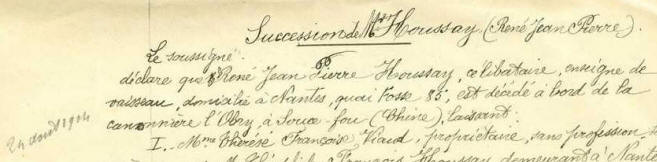 Succession de Mr Houssay (René Jean Pierre).
Le soussigné.
déclare que René Jean Pierre Houssay, célibataire, enseigne de
vaisseau, domicilié à Nantes, quai Fosse 85, est décédé à bord de la
canonnière l'Olry, à (Chine), laissant:
24 août 1904
I. Mme Thérèse François Viaud, propriétaire, sans profession,
Houssay, demeurant à Nantes